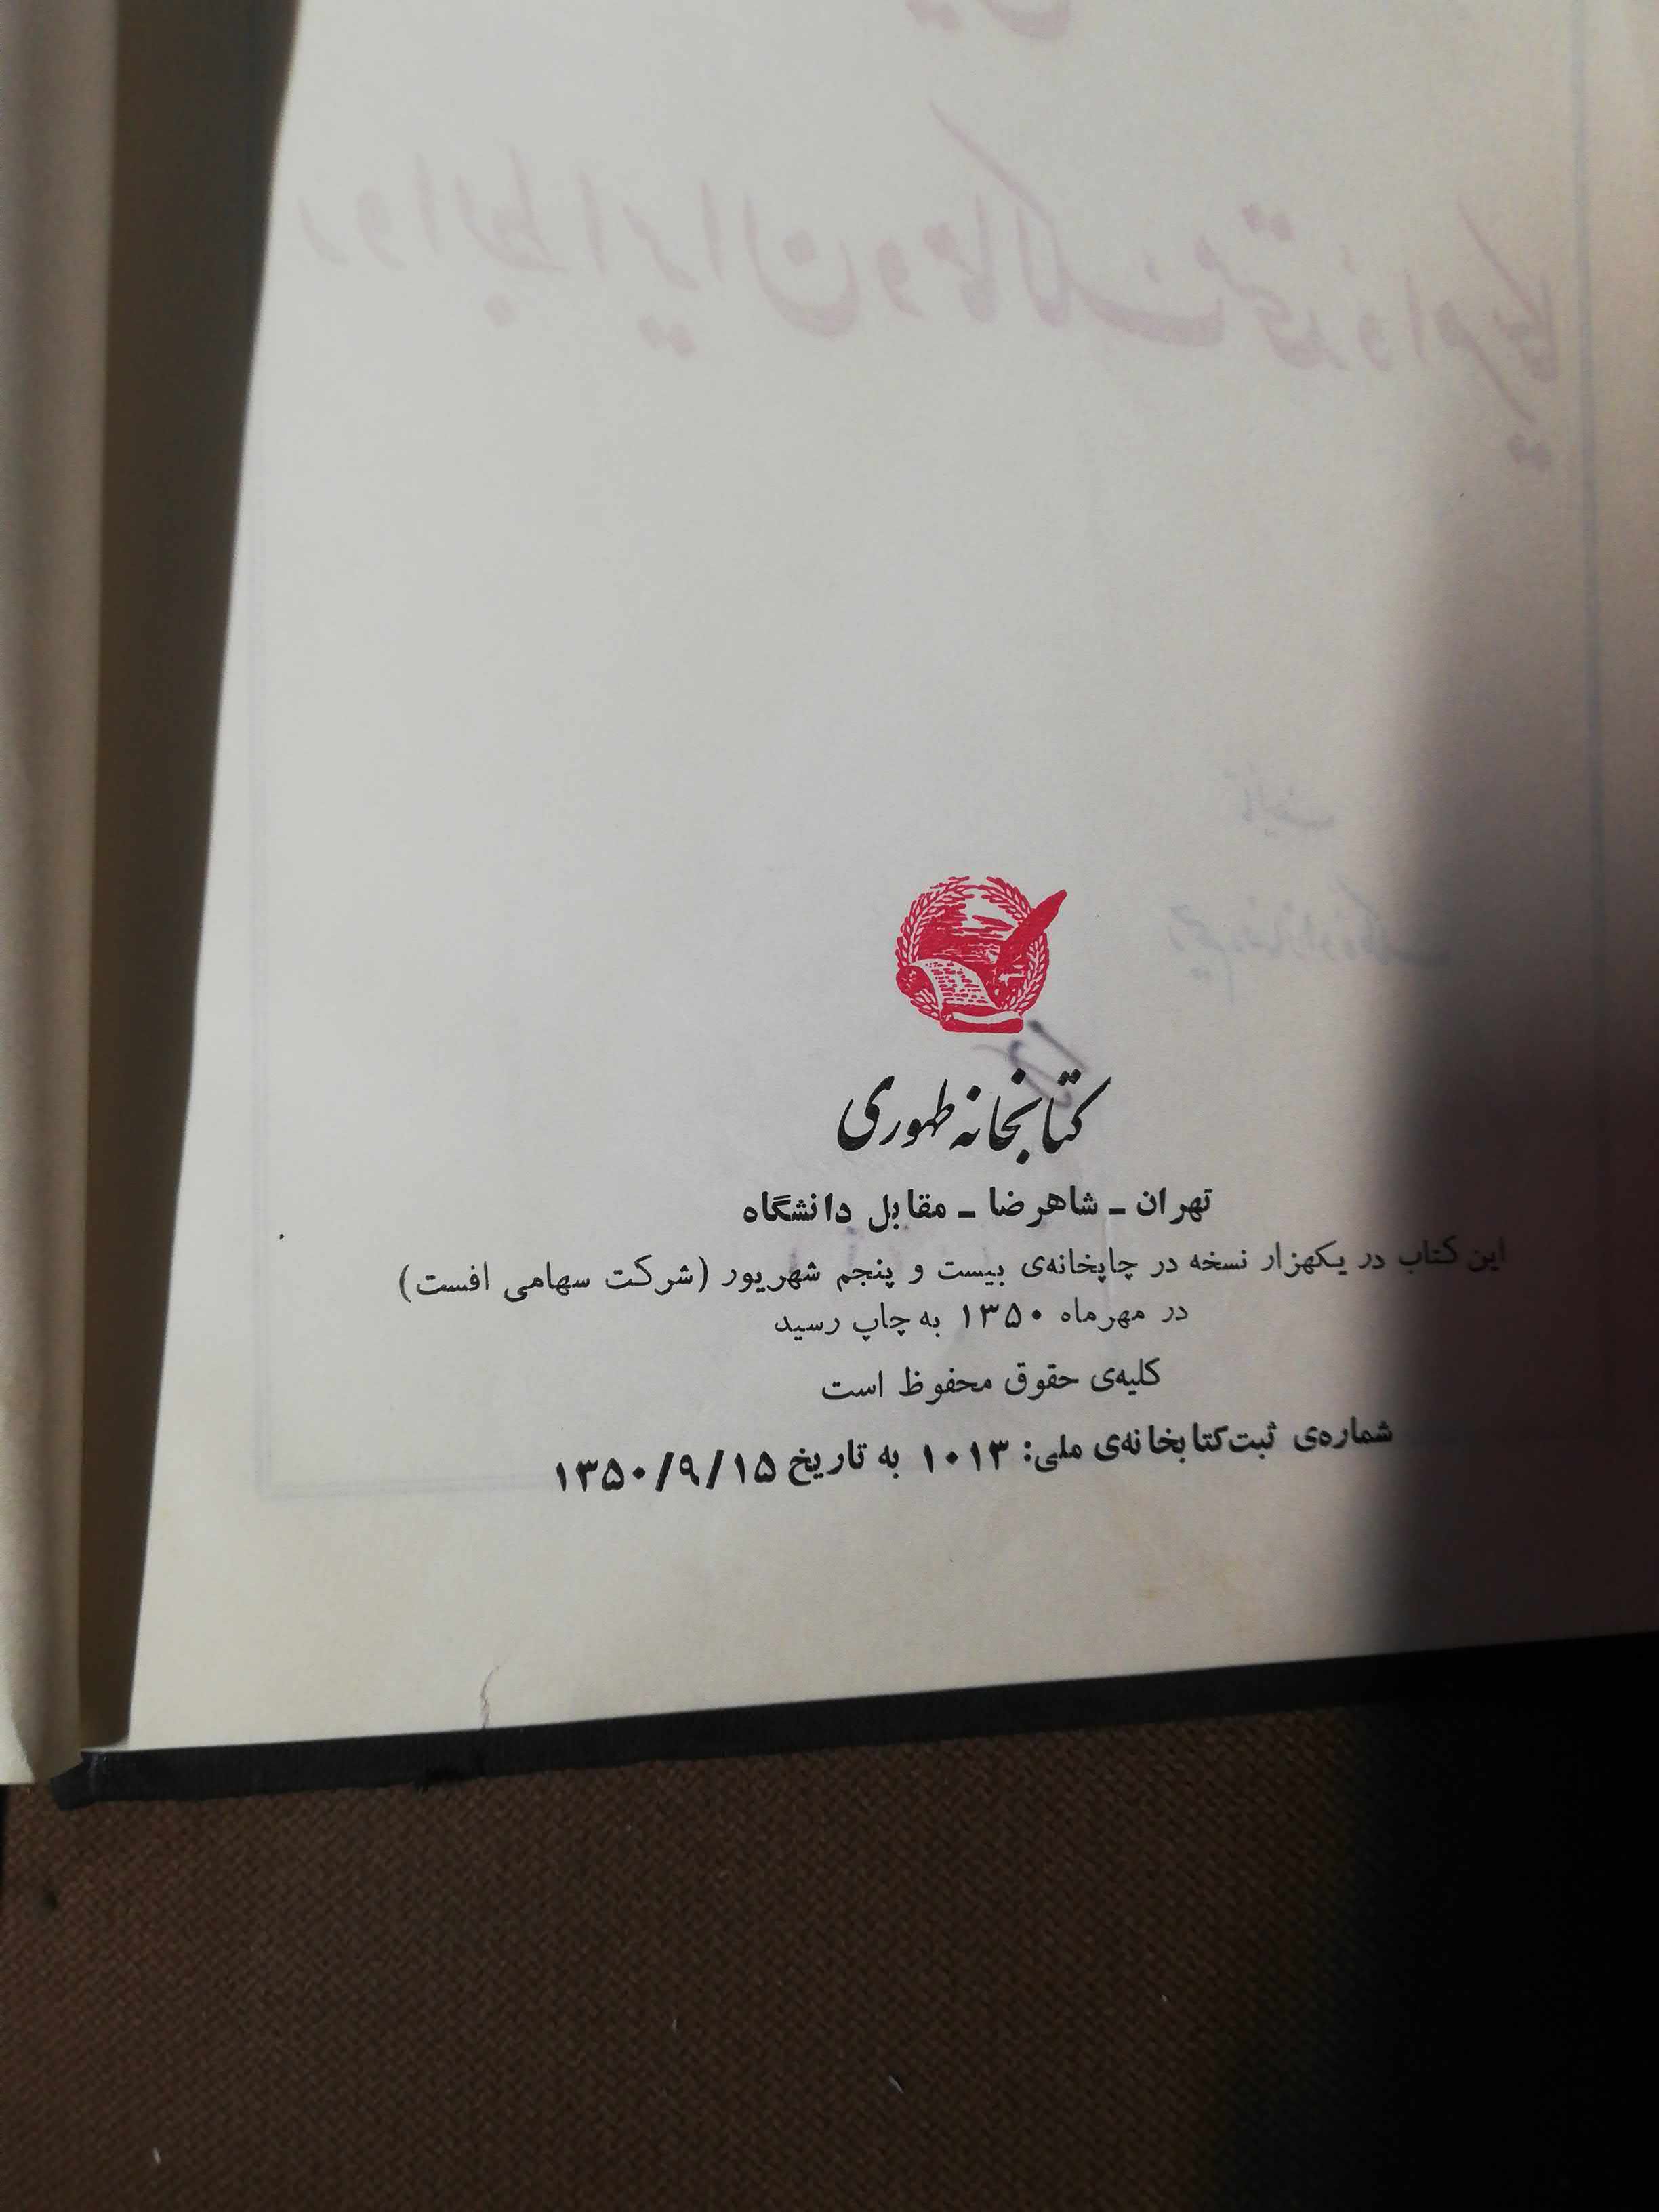 روابط ایران و ممالک متحده امریکا
تألیف
کتابخانه طهوری
تهران ـ شاهرضا ـ مقابل دانشگاه
این کتاب در یکهزار نسخه در چاپخانه‌ی بیست و پنجم شهریور (شرکت سهامی افست)
در مهرماه ۱۳۵۰ به چاپ رسید
کلیه‌ی حقوق محفوظ است
شماره‌ی ثبت کتابخانه‌ی ملی: ۱۰۱۳ به تاریخ ۱۳۵۰/۹/۱۵